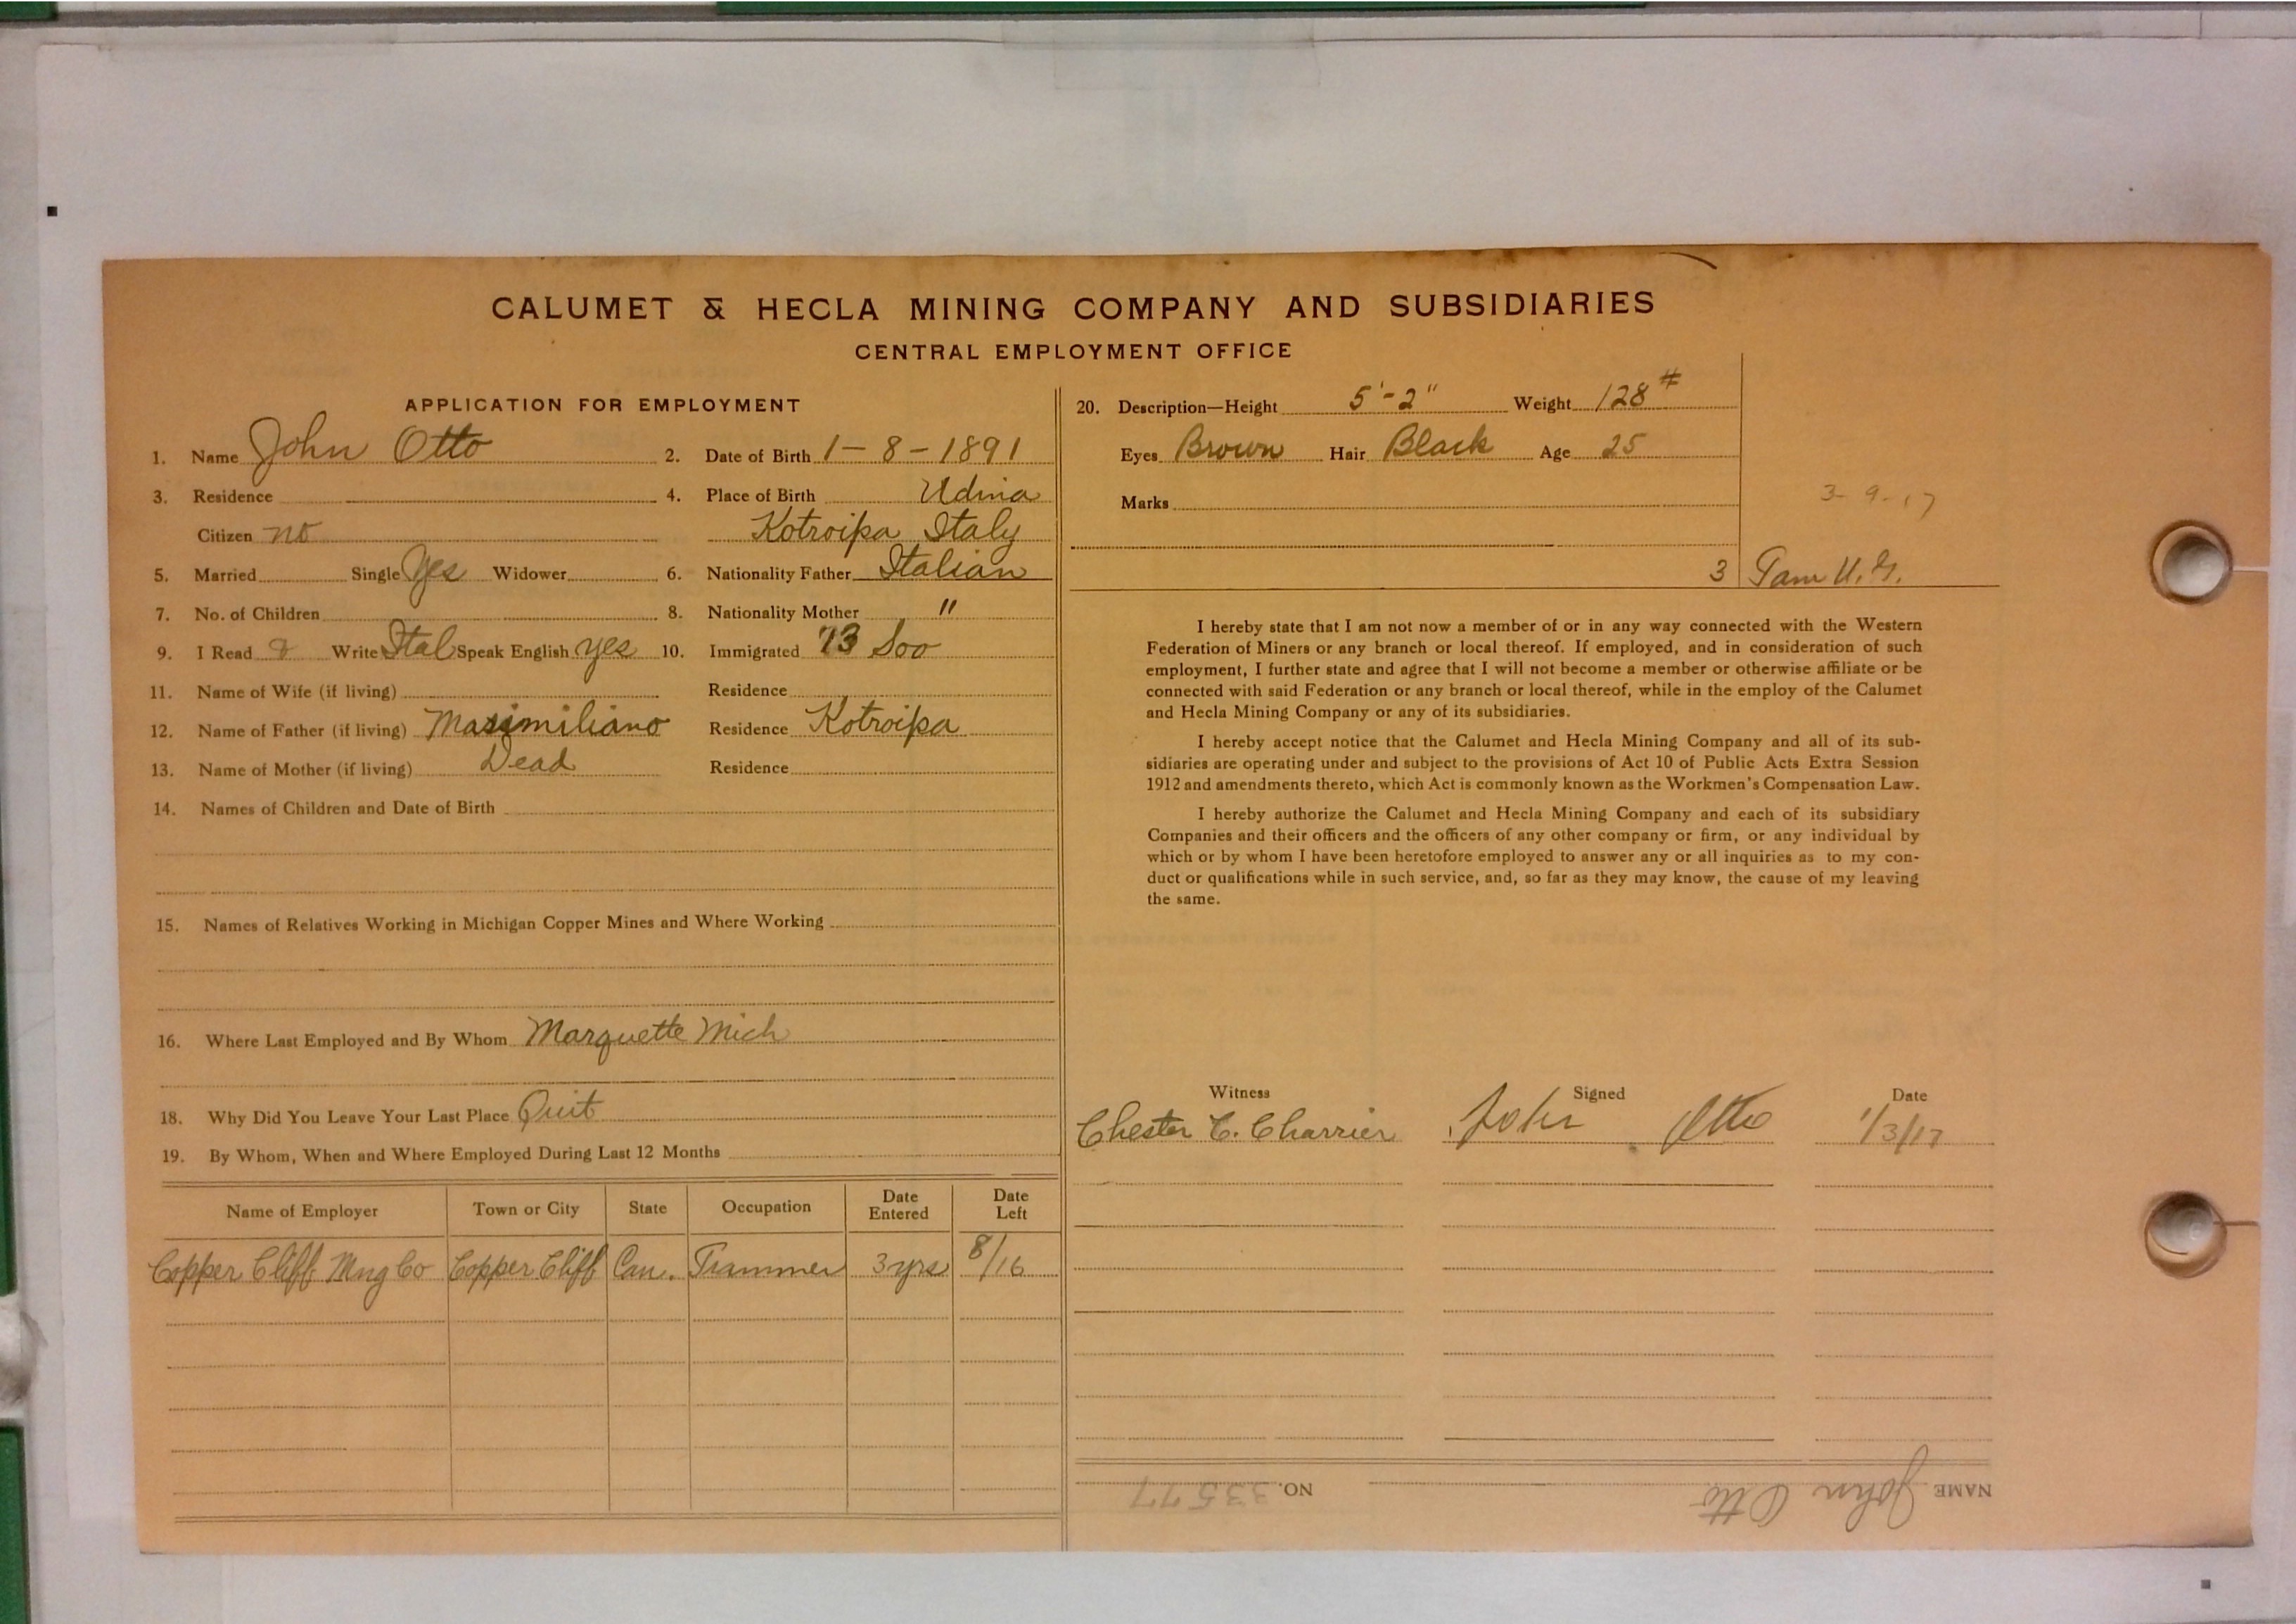 CALUMET & HECLA MINING COMPANY AND SUBSIDIARIES
CENTRAL EMPLOYMENT OFFICE
APPLICATION FOR EMPLOYMENT
1. Name John Otto 2. Date of Birth 1-8-1891
3. Residence 4. Place of Birth Udina
Citizen no Kotroipa Italy
5. Married Single Yes Widower 6. Nationality Father Italian
7. No. of Children 8. Nationality Mother "
9. I Read & Write Ital Speak English yes 10. Immigrated '13 Soo
11. Name of Wife (if living) Residence
12. Name of Father (if living) Masimiliano Residence Kotroipa
13. Name of Mother (if living) Dead Residence
14. Names of Children and Date of Birth
15. Names of Relatives Working in Michigan Copper Mines and Where Working
16. Where Last Employed and By Whom Marquette Mich
18. Why Did You Leave Your Last Place Quit
19. By Whom, When and Where Employed During Last 12 Months
Name of Employer Town or City State Occupation Date Entered Date Left
Copper Cliff Mng Co Copper Cliff Can. Trammer 3 yrs 8/16
20. Description—Height 5'-2" Weight 128#
Eyes Brown Hair Black Age 25
Marks
3-9-17
3 Tam U.G.
I hereby state that I am not now a member of or in any way connected with the Western
Federation of Miners or any branch or local thereof. If employed, and in consideration of such
employment, I further state and agree that I will not become a member or otherwise affiliate or be
connected with said Federation or any branch or local thereof, while in the employ of the Calumet
and Hecla Mining Company or any of its subsidiaries.
I hereby accept notice that the Calumet and Hecla Mining Company and all of its sub-
sidiaries are operating under and subject to the provisions of Act 10 of Public Acts Extra Session
1912 and amendments thereto, which Act is commonly known as the Workmen's Compensation Law.
I hereby authorize the Calumet and Hecla Mining Company and each of its subsidiary
Companies and their officers and the officers of any other company or firm, or any individual by
which or by whom I have been heretofore employed to answer any or all inquiries as to my con-
duct or qualifications while in such service, and, so far as they may know, the cause of my leaving
the same.
Witness Signed Date
Chester C. Charrier John Otto 1/3/17
NAME John Otto NO. 33577